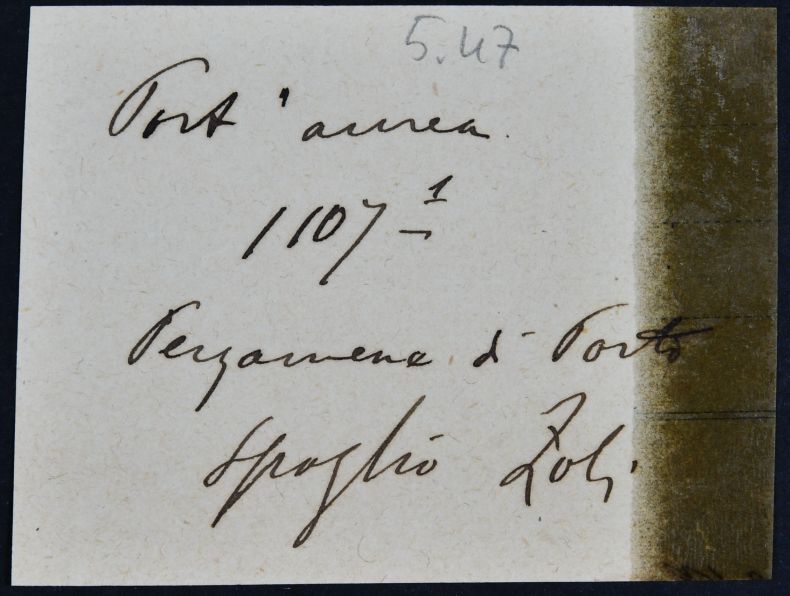 5.47
Port'aurea.
1107 1
Pergamena di Porto
Spoglio Zoli